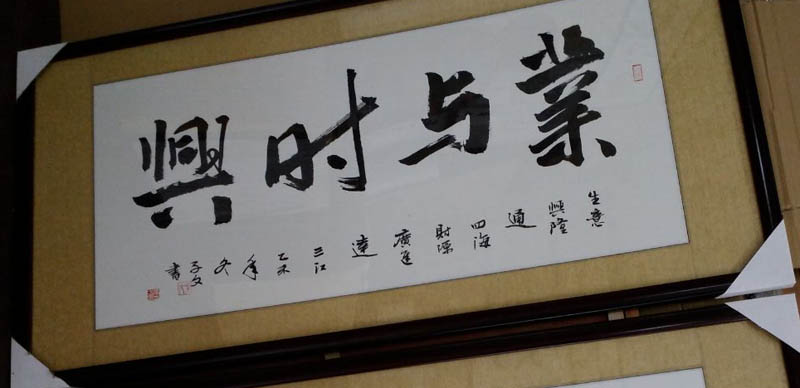 業与时興
生意興隆通四海財源廣進達三江乙未年冬子文書